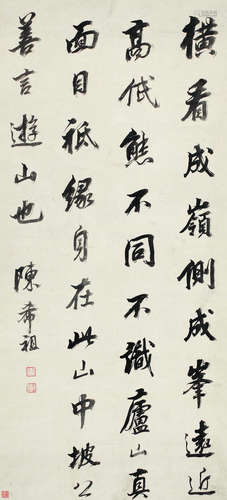 橫看成嶺側成峯遠近
高低熊不同不識廬山真
面目祗緣身在此山中坡公
善言遊山也
陳希祖